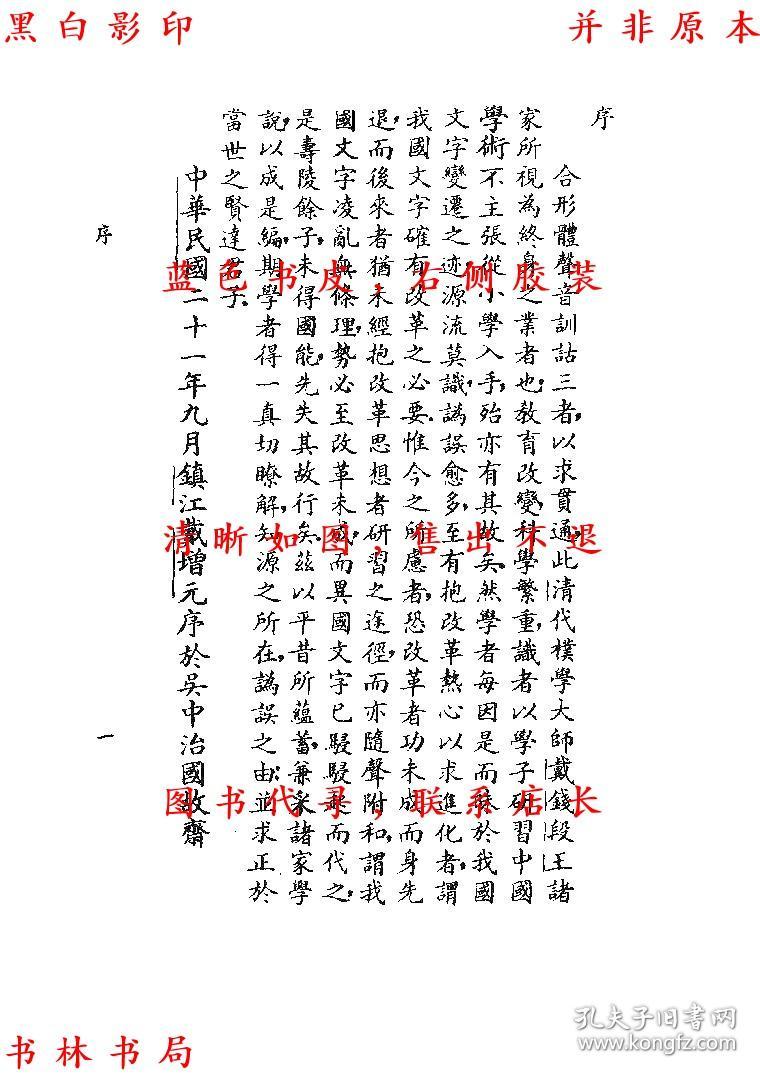 黑白影印
并非原本
序
合形體聲音訓詁三者，以求貫通，此清代樸學大師戴錢段王諸
家所視為終身之業者也；教育改變，科學繁重，識者以學子研習中國
學術不主張從小學入手，殆亦有其故矣。然學者每因是而昧於我國
文字變遷之迹，源流莫識，譌誤愈多，至有抱改革熱心以求進化者，謂
我國文字確有改革之必要。惟今之所慮者，恐改革者功未成而身先
退，而後來者猶未經抱改革思想者研習之途徑，而亦隨聲附和，謂我
國文字凌亂無條理，勢必至改革未成，而異國文字已駸駸乎而代之，
是壽陵餘子，未得國能，先失其故行矣。茲以平昔所蘊蓄，兼采諸家學
說，以成是編，期學者得一真切瞭解，知源之所在，譌誤之由；並求正於
當世之賢達君子。
中華民國二十一年九月鎮江戴增元序於吳中治國故齋
序
一
蓝色书皮，右侧胶装
清晰如图，售出不退
图书代寻，联系店长
书林书局
孔夫子旧书网
www.kongfz.com